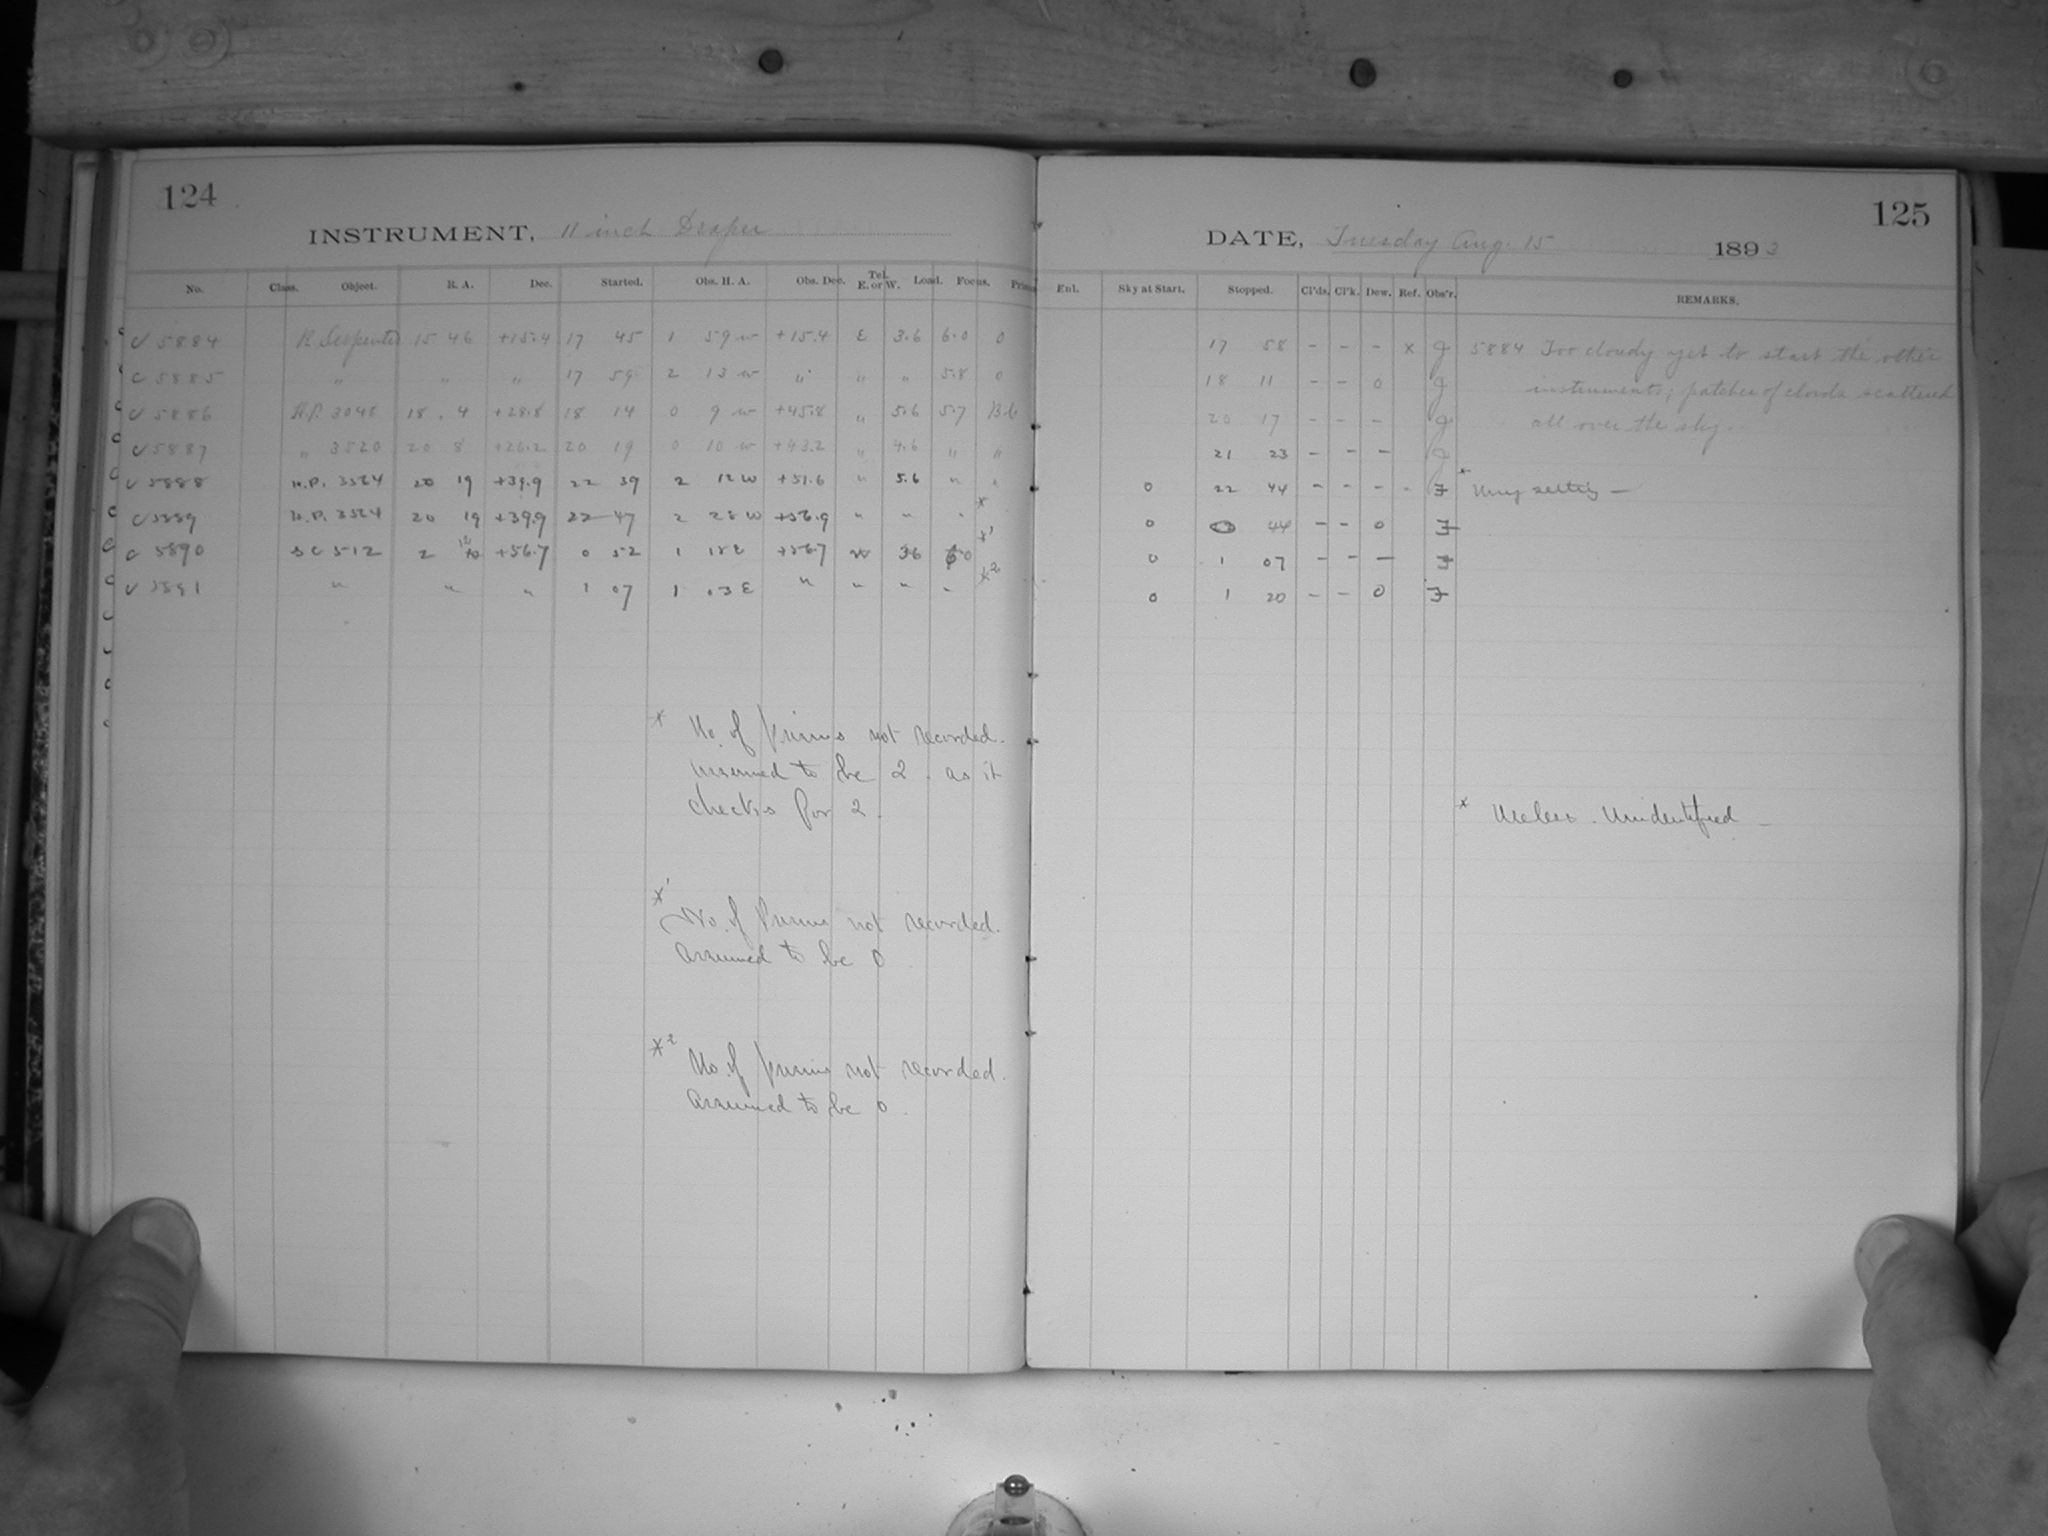 124
INSTRUMENT, 11 inch Draper
No. Class. Object. R. A. Dec. Started. Obs. H. A. Obs. Dec. Tel. E. or W. Load. Focus.
C 5884 R. Serpentis 15 46 +15.4 17 45 1 59 w +15.4 E 3.6 6.0 0
C 5885 " " " 17 59 2 13 w " " " 5.8 0
C 5886 H.P. 3048 18 4 +28.8 18 14 0 9 w +45.8 " 5.6 5.7
C 5887 " 3520 20 8 +26.2 20 19 0 10 w +43.2 " 4.6 " "
C 5888 H.P. 3564 20 19 +39.9 22 39 2 12 W +51.6 " 5.6 " "
C 5889 H.P. 3564 20 19 +39.9 22 47 2 28 W +56.9 " " " " *
C 5890 S C 512 2 12 +56.7 0 52 1 18 E +56.7 W 36 60 *1
C 5891 " " " 1 07 1 03 E " " " " *2
* No. of prisms not recorded.
assumed to be 2. as it
checks for 2.
*1 No. of Prisms not recorded.
assumed to be 0
*2 No. of prisms not recorded.
assumed to be 0.
125
DATE, Tuesday Aug. 15 1893
Enl. Sky at Start. Stopped. Cl'ds. Cl'k. Dew. Ref. Obs'r. REMARKS.
17 58 - - - x J 5884 Too cloudy yet to start the other
18 11 - - 0 J instruments; patches of clouds scattered
20 17 - - - J all over the sky.
21 23 - - - J
0 22 44 - - - - F *
0 44 - - 0 F
0 1 07 - - - F
0 1 20 - - 0 F
* Useless. Unidentified -